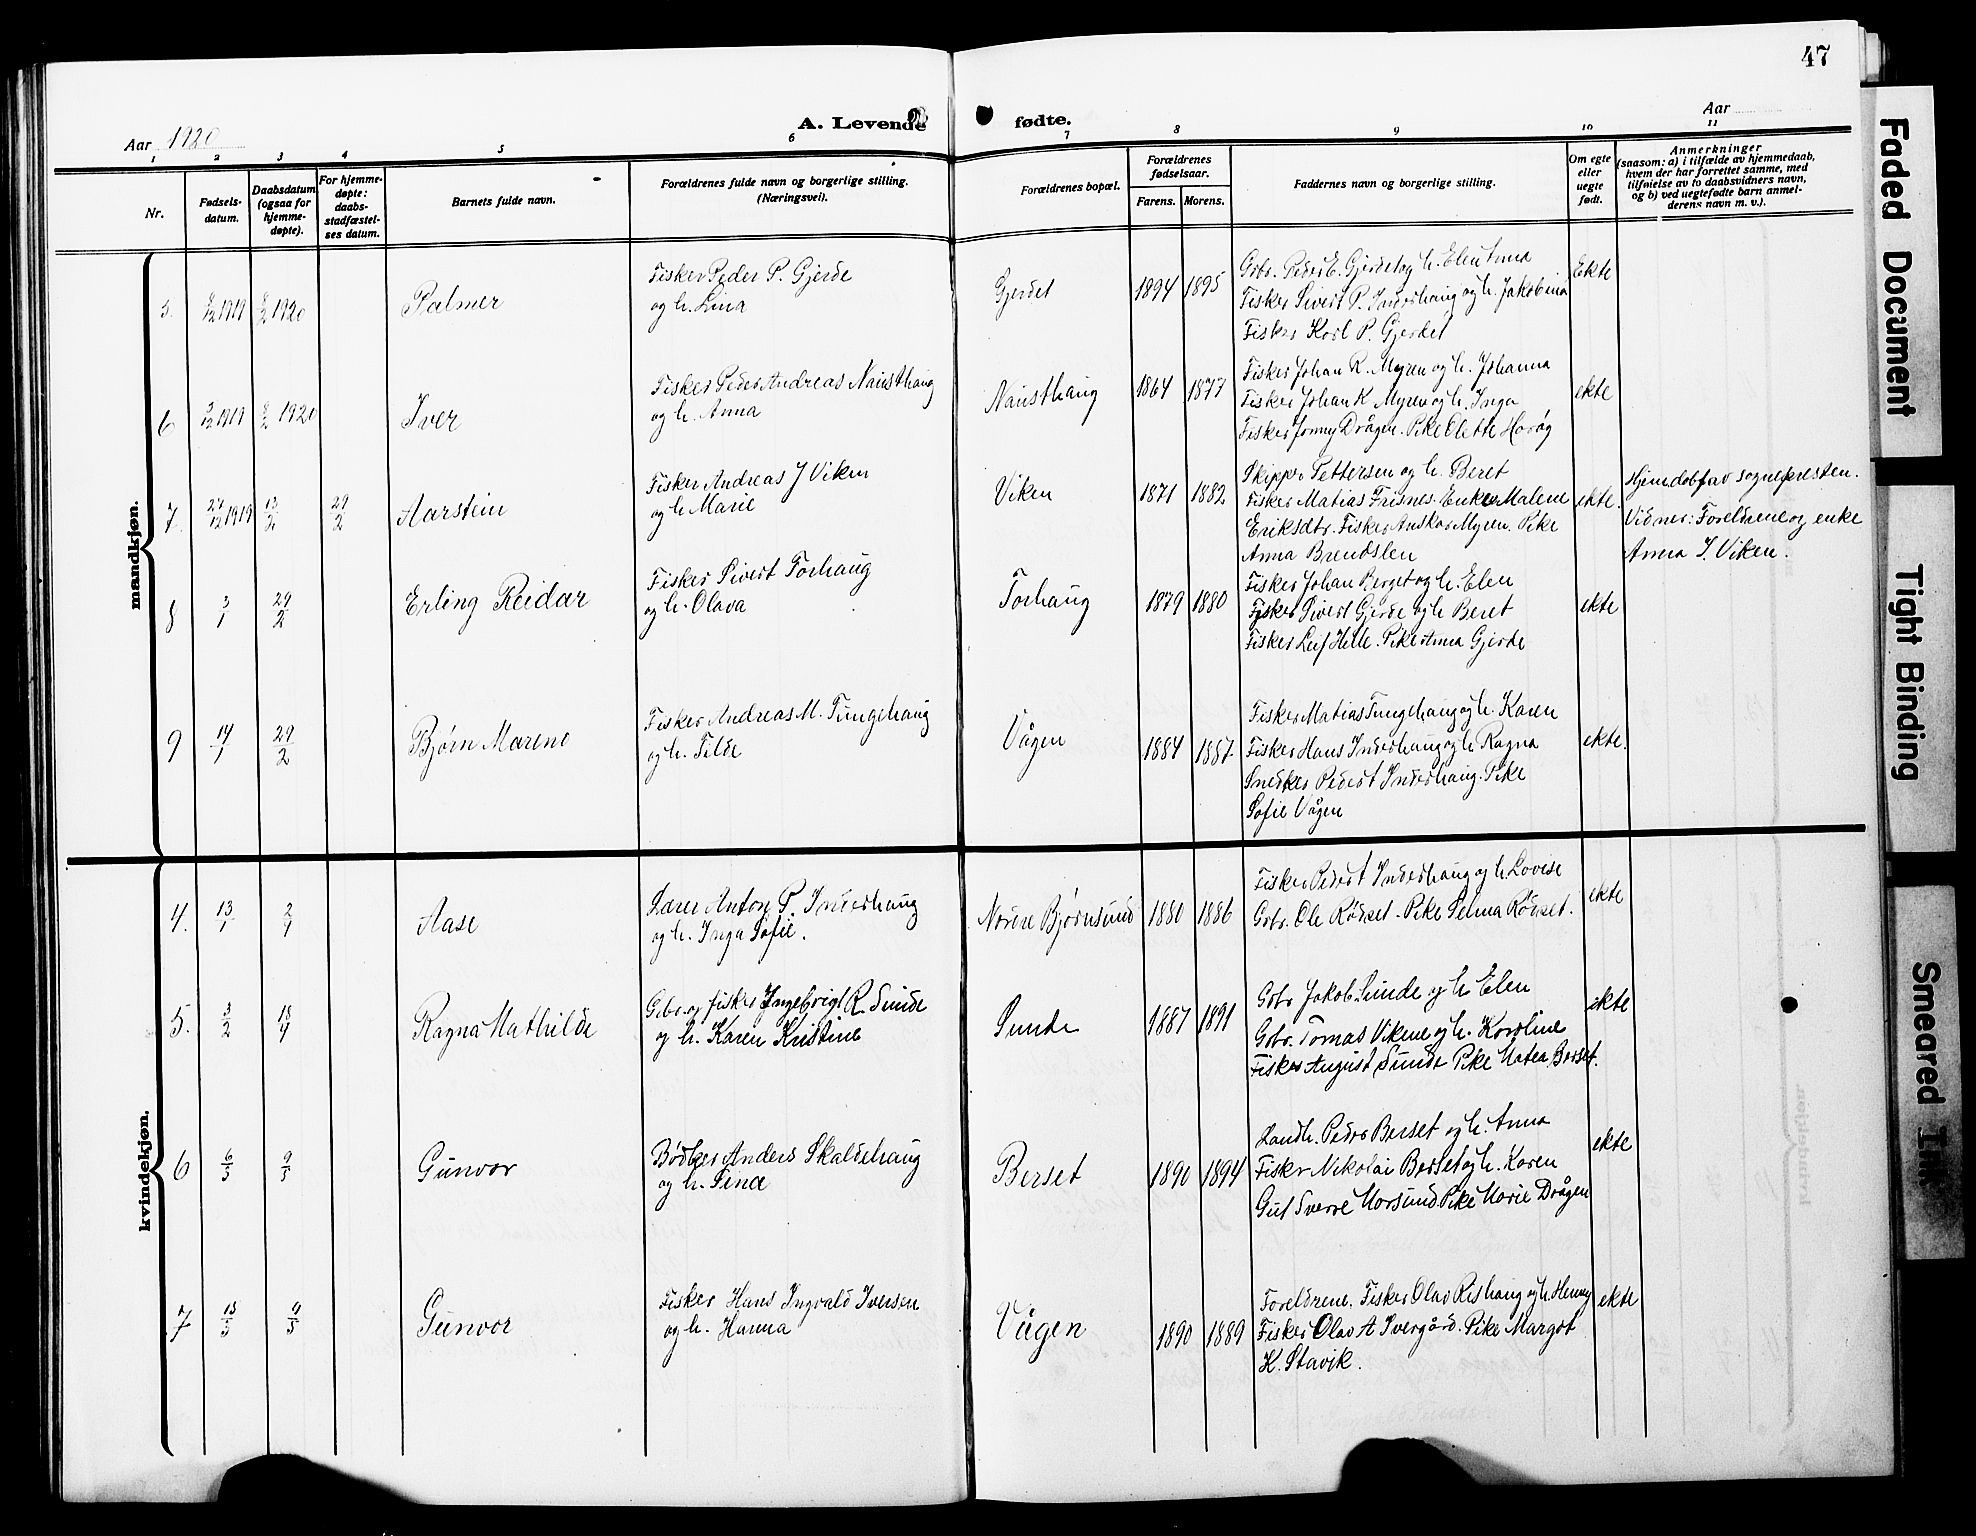 47
Aar 1920
A. Levende fødte.
Aar
1 2 3 4 5 6 7 8 9 10 11
Nr.
Fødsels-
datum.
Daabsdatum
(ogsaa for
hjemme-
døpte).
For hjemme-
døpte:
daabs-
stadfæstel-
ses datum.
Barnets fulde navn.
Forældrenes fulde navn og borgerlige stilling.
(Næringsvei).
Forældrenes bopæl.
Forældrenes
fødselsaar.
Farens. Morens.
Faddernes navn og borgerlige stilling.
Om egte
eller
uegte
født.
Anmerkninger
(saasom: a) i tilfælde av hjemmedaab,
hvem der har forrettet samme, med
tilføielse av to daabsvidners navn,
og b) ved uegtefødte barn anmel-
derens navn m. v.).
mandkjøn.
5. 1919 1920
Palmer
Fisker Peder P. Gjerde
og h. Lina
Gjerdet
1894 1895
Gbr. Peder E. Gjerdet og h. Elen Anna
Fisker Sivert P. Inderhaug og h. Jakobina
Fisker Karl P. Gjerdet
Ekte
6 1919 1920
Iver
Fisker Peder Andreas Nausthaug
og h. Anna
Nausthaug
1864 1877
Fisker Johan R. Myren og h. Johanna
Fisker Johan K Myren og h. Inga
Fisker Jonny Drågen. Pike Olette Harøg
ekte
7. 27/12 1919 13/2 29/2
Aarstein
Fisker Andreas J Viken
og h. Marie
Viken
1871 1882
Skipper Pettersen og h. Beret
Fisker Matias Frisnes. Enke Malene
Eriksdtr. Fisker Anskar Myren. Pike
Anna Brendslen
ekte.
Hjemdøbt av sognepresten.
Vidner: Foreldrene og enke
Anna J. Viken.
8 3/1 29/2
Erling Reidar
Fisker Sivert Torhaug
og h. Olava
Torhaug
1879 1880
Fisker Johan Berget og h. Elen
Fisker Sivert Gjerde og h Beret
Fisker Leif Helle. Pike Anna Gjerde
ekte
9 14/1 29/2
Bjørn Mareno
Fisker Andreas M. Tungehaug
og h. Tilde
Vågen
1884 1887.
Fisker Matias Tungehaug og h. Karen
Fisker Hans Inderhaug og h Ragna
Snedker Peder T Inderhaug. Pike
Sofie Vågen
ekte.
kvindekjøn.
4. 13/1 2/4
Aase
Lærer Anton P. Inderhaug
og h. Inga Sofie.
Nørere Bjørnsund
1880 1886
Fisker Peder T Inderhaug og h. Lovise
Gbr. Ole Rödset. Pike Selma Rödset.
ekte
5. 3/2 18/4
Ragna Mathilde
Gbr. og fisker Ingebrigt R. Sunde
og h. Karen Kristine
Sunde
1887 1891
Gbr Jakob Sunde og h. Elen
Gbr. Tomas Vikene og h. Karoline
Fisker August Sunde Pike Matea Berset.
ekte
6 6/3 9/5
Gunvor
Bødker Anders Skaldehaug
og h. Tina
Berset
1890 1894
Landh. Peder Berset og h. Anna
Fisker Nikolai Berset og h. Karen
Gut Sverre Harsund Pike Marie Drågen
ekte
7 15/3 9/5
Gunvor
Fisker Hans Ingvald Iversen
og h. Hanna
Vågen
1890 1889
Foreldrene. Fisker Olav Rishaug og h. Henny
Fisker Olav A Ivergård. Pike Margot
K. Stavik.
ekte
Faded Document
Tight Binding
Smeared Ink